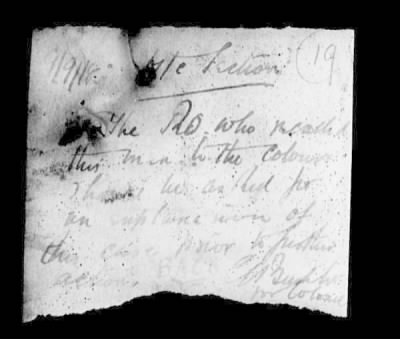 19
Section
The RO who recalled
this man to the colours
should be asked for
an explanation of
this case prior to further
action.
for Colonel